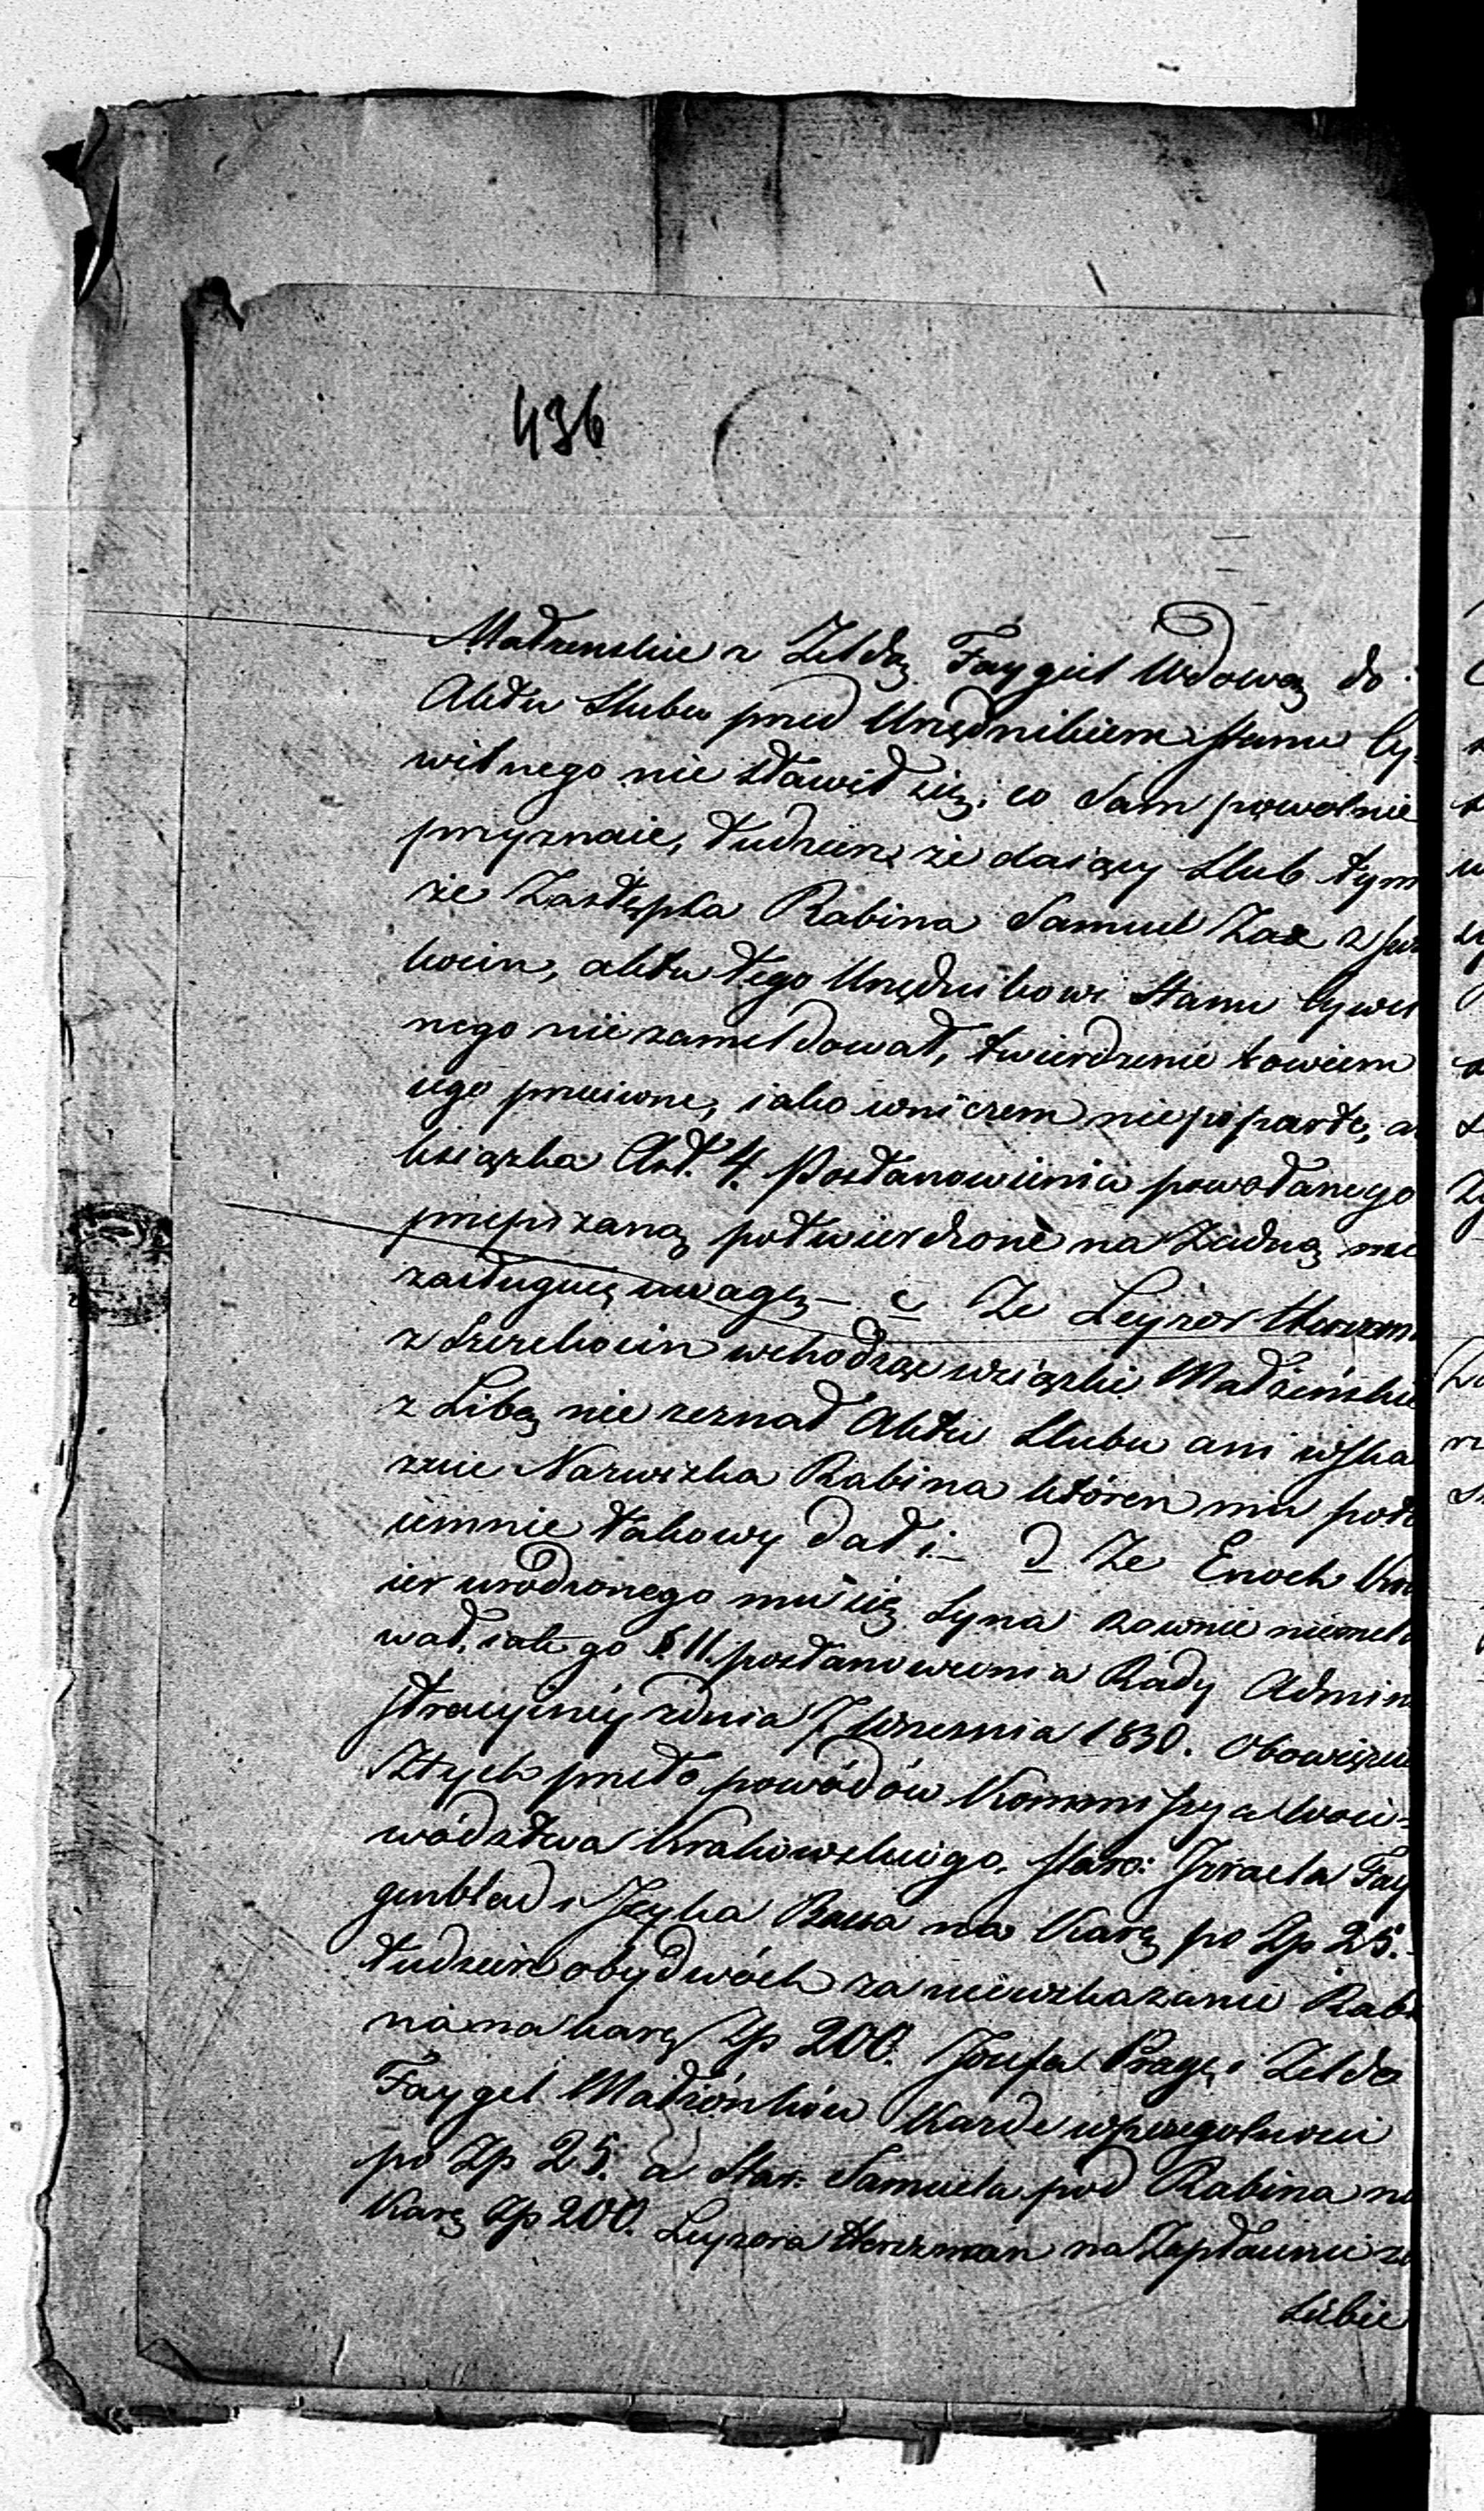 436
Małżeńskie z Zeldą Faygiel Wdową do
Aktu Slubu przed Urzędnikiem stanu Cy-
wilnego nie stawił się; co sam powolnie
przyznaie, tudzież że daiący Slub tym
że Zastępca Rabina Samuel Zax z
kocin, aktu tego Urzędnikowi Stanu Cywil
nego nie zameldował, twierdzenie bowiem
iego przeciwne, iako wniczem niepoparte, a
książka Art. 4. Postanowienia powołanego
przepisaną potwierdzone na żadną nie
zasługuie uwagę – c Że Leyzor Herszm
z Szczekocin wchodząc wziązki Małżeńskie
z Libą nie zeznał Aktu Slubu ani wska
zuie Nazwiska Rabina któren mu pota
iemnie takowy dał i – d Że Enoch
ier urodzonego mu się Syna rownie niemeldo
wał, iak go §. 11. postanowienia Rady Admini
stracyiney zdnia 7 Wrzesnia 1830. Obowięzuie
Ztych przeto powódów Kommissya Woie-
wództwa Krakowskiego. star: Izraela Fay
genblad i Jcyka Bausa na Karę po Zp 25.-
tudzież obydwóch za niewskazanie Rabi
na na karę Zp 200. Josefa Pragę i Zelda
Faygel Małżonków Każde wszczegolnosci
po Zp 25. a Star. Samuela pod Rabina na
Karę Zp 200. Leyzora Herszman na Zapłacenie za
Siebie